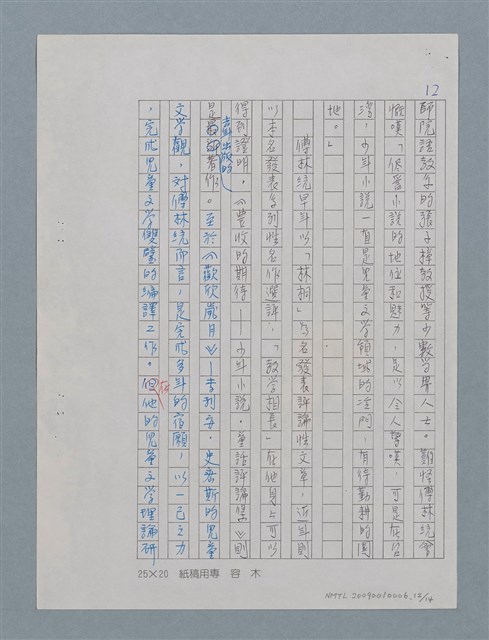 12
師院語教系的張子樟教授等少數學界人士。難怪傅林統會
慨嘆「保留小說的地位和魅力,是以令人驚嘆,可是在台
灣,少年小說一直是兒童文學領域的冷門,有待勤耕的園
地。」
傅林統早年以「林桐」為名發表評論性文章,近年則
以本名發表系列性名作選評,「教學相長」在他身上可以
得到證明,《豐收的期待——少年小說、童話評論集》則
是最新出版的著作。至於《歡欣歲月》——李利安.史密斯的兒童
文學觀,對傅林統而言,是完成多年的宿願,以一己之力
,完成兒童文學雙璧的編譯工作。但在他的兒童文學理論研
25×20 紙稿用專 容 木
NMTL 20090010006.12/14